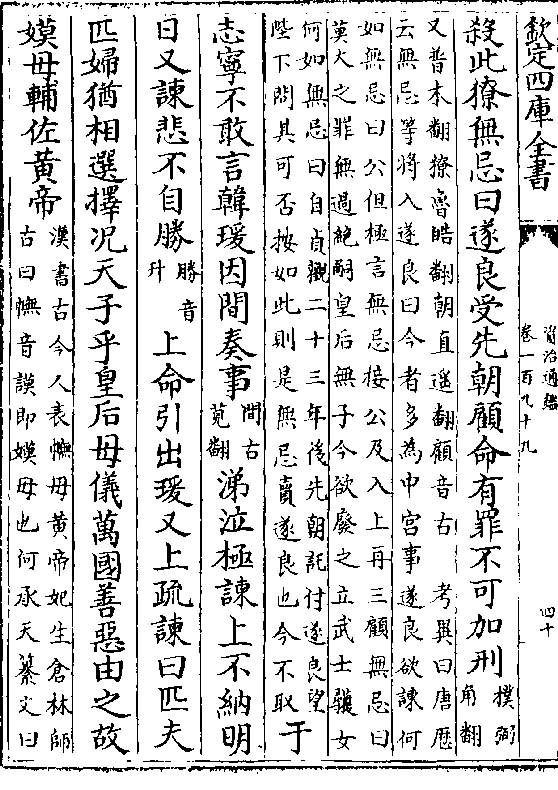 欽定四庫全書
資治通鑑
卷一百九十九
四十
殺此獠無忌曰遂良受先朝顧命有罪不可加刑
撲弼
角翻
又普木翻獠魯皓翻朝直遥翻顧音古　考異曰唐厯
云無忌等將入遂良曰今者多為中宫事遂良欲諫何
如無忌曰公但極言無忌接公及入上再三顧無忌曰
莫大之罪無過絶嗣皇后無子今欲廢之立武士彠女
何如無忌曰自貞觀二十三年後先朝託付遂良望
陛下問其可否按如此則是無忌賣遂良也今不取
于
志寧不敢言韓瑗因間奏事
間古
莧翻
涕泣極諫上不納明
日又諫悲不自勝
勝音
升
上命引出瑗又上疏諫曰匹夫
匹婦猶相選擇况天子乎皇后母儀萬國善惡由之故
嫫母輔佐黄帝
漢書古今人表㦆母黄帝妃生倉林師
古曰㦆音謨即嫫母也何承天纂文曰